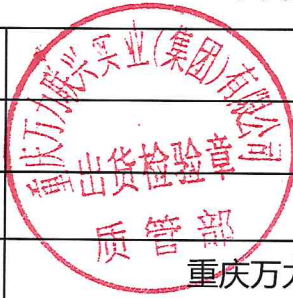 重庆万力联兴实业(集团)有限公司
出货检验章
质管部
重庆万